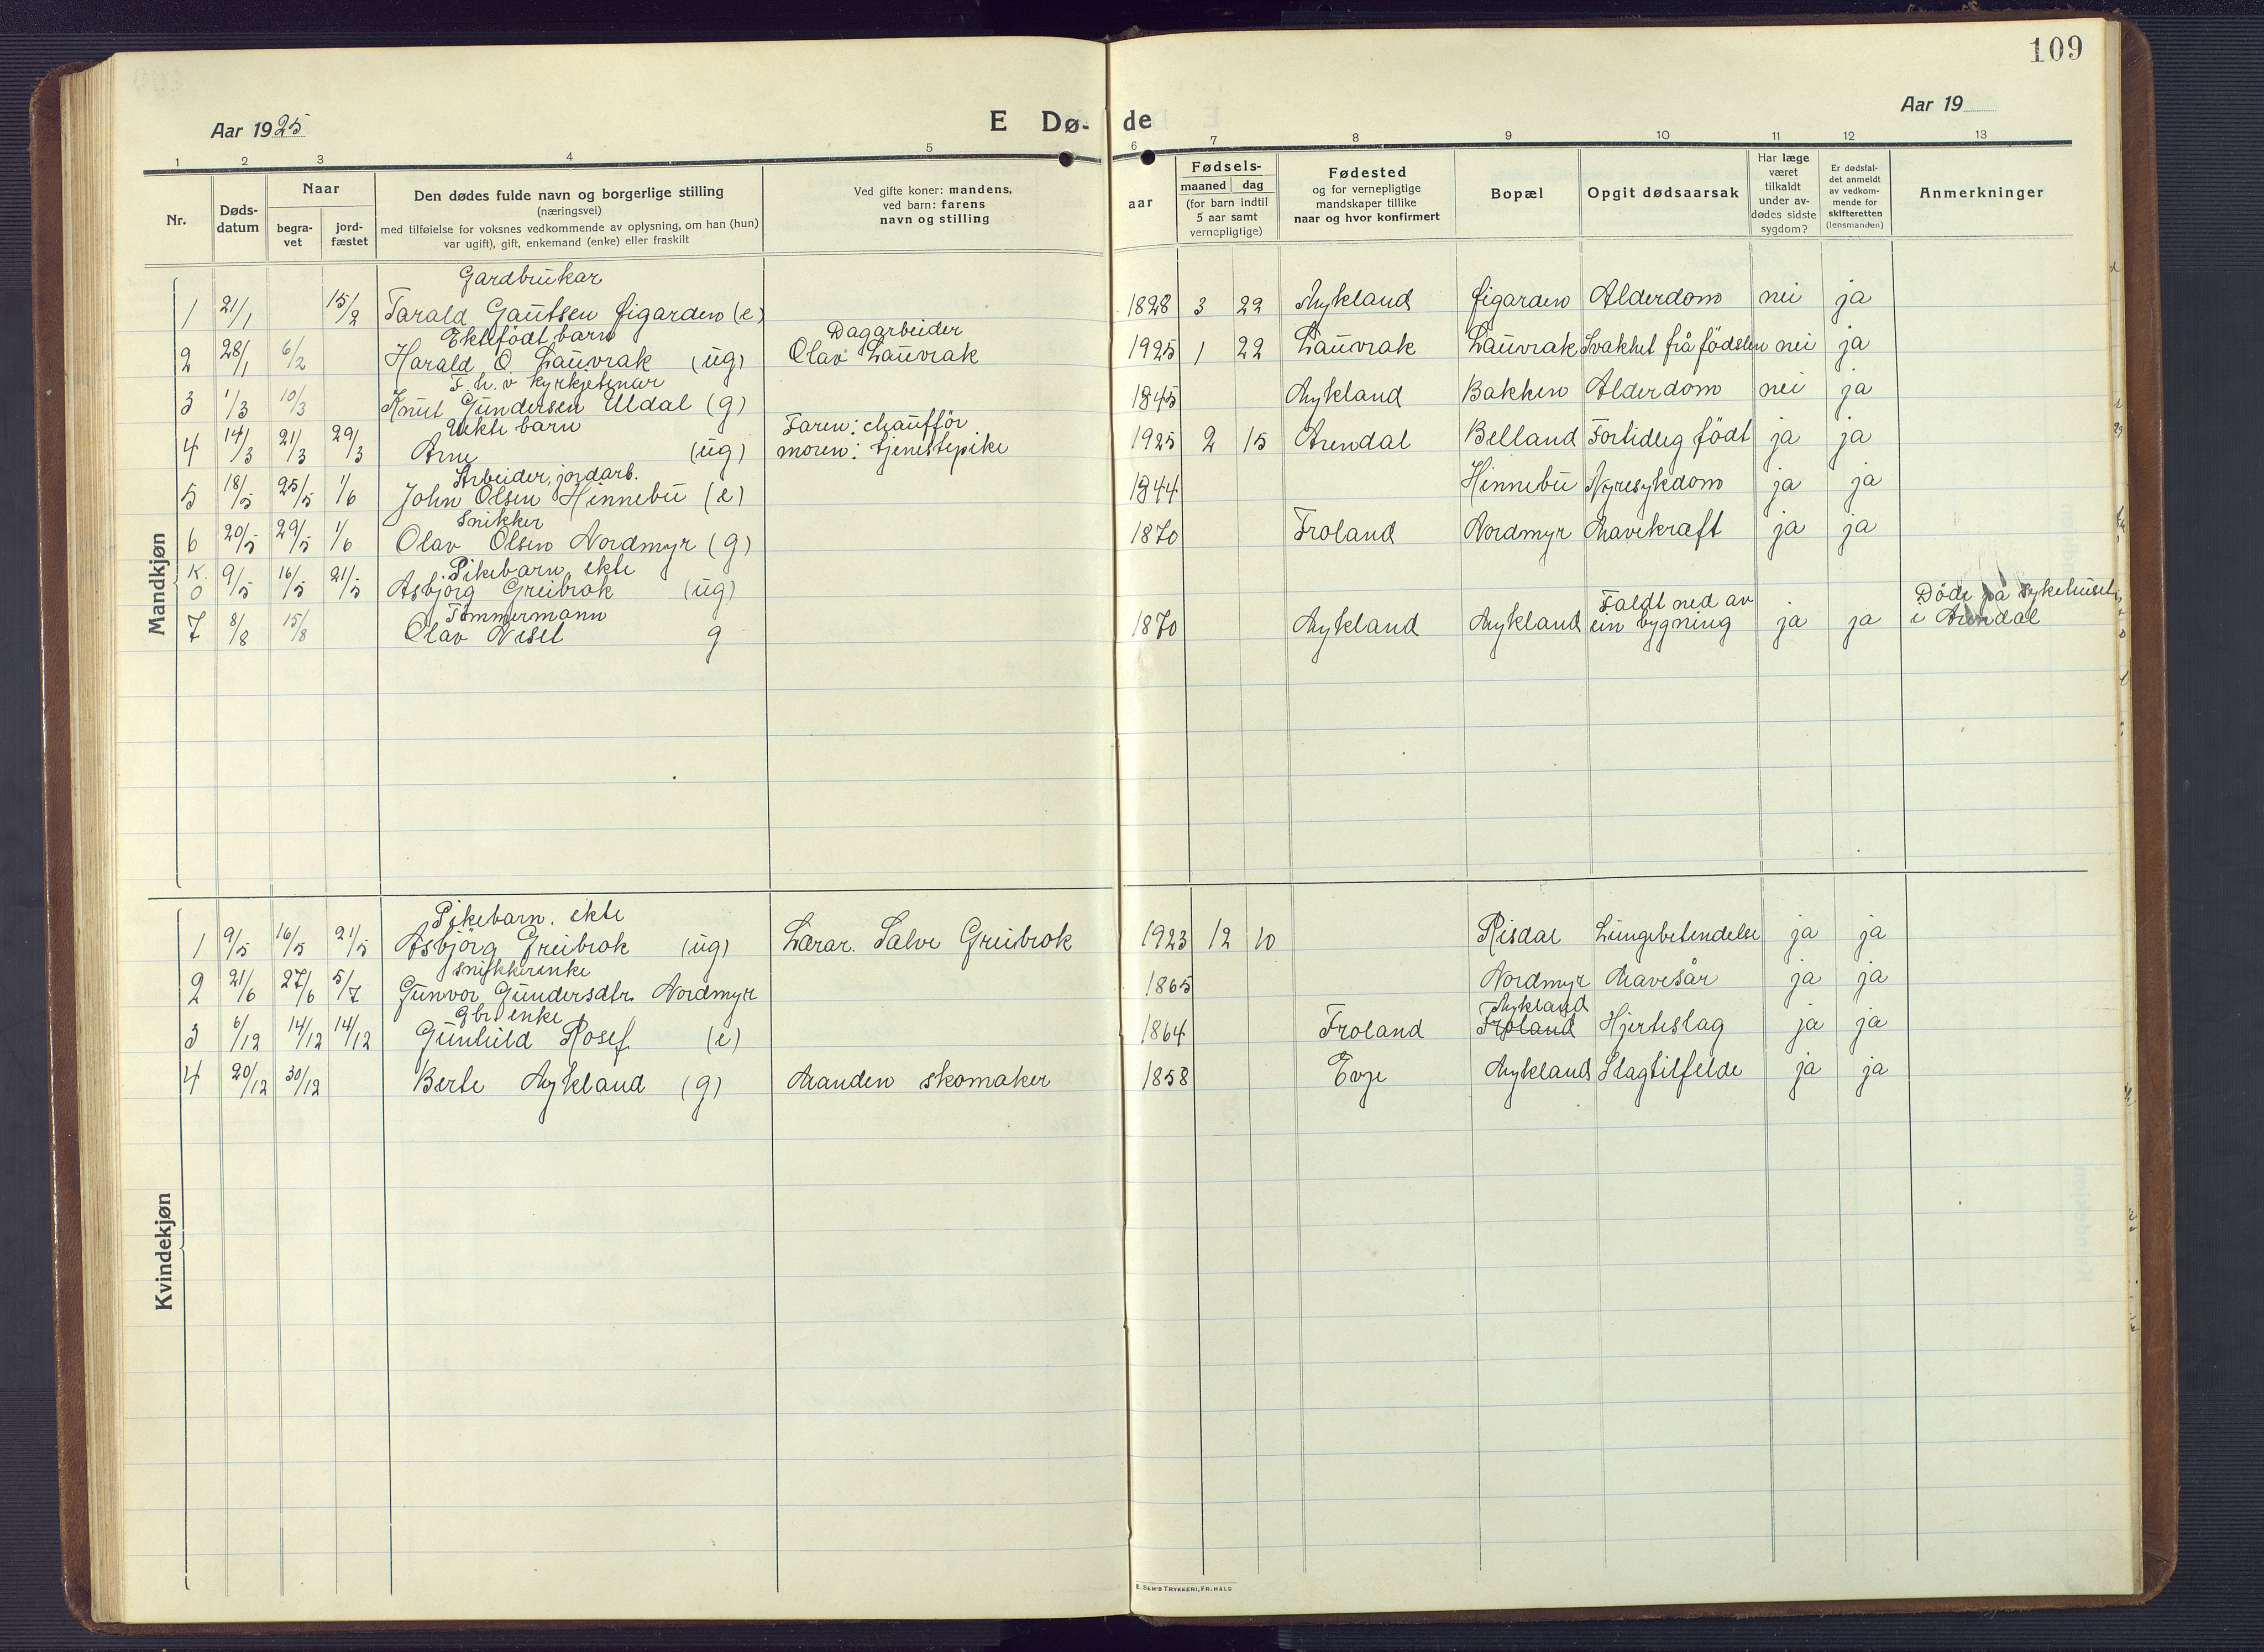 109
Aar 1925
E Dø-
de
Aar 19
1 2 3 4 5 6 7 8 9 10 11 12 13
Nr.
Døds-
datum
Naar
begra-
vet
jord-
fæstet
Den dødes fulde navn og borgerlige stilling
(næringsvei)
med tilføielse for voksnes vedkommende av oplysning, om han (hun)
var ugift), gift, enkemand (enke) eller fraskilt
Ved gifte koner: mandens,
ved barn: farens
navn og stilling
aar
Fødsels-
maaned dag
(for barn indtil
5 aar samt
vernepligtige)
Fødested
og for vernepligtige
mandskaper tillike
naar og hvor konfirmert
Bopæl
Opgit dødsaarsak
Har læge
været
tilkaldt
under av-
dødes sidste
sygdom?
Er dødsfal-
det anmeldt
av vedkom-
mende for
skifteretten
(lensmanden)
Anmerkninger
Mandkjøn
Gardbrukar
1 21/1 15/2 Tarald Gautsen Øigarden (e) 1828 3 22 Mykland Øigarden Alderdom nei ja
Ektefödt barn Dagarbeider
2 28/1 6/2 Harald O. Lauvrak (ug) Olav Lauvrak 1925 1 22 Lauvrak Lauvrak Svakhet frå födslen nei ja
F. h. v kyrkjetenar
3 1/3 10/3 Knut Gundersen Uldal (g) 1845 Mykland Bakken Alderdom nei ja
Uekte barn Faren: chaufför
4 14/3 21/3 29/3 Arne (ug) moren: tjenestepike 1925 2 15 Arendal Belland Fortideg födt ja ja
Arbeider, jordarb.
5 18/5 25/5 1/6 John Olsen Hinnebu (e) 1844 Hinnebu Nyresykdom ja ja
Snikker
6 20/5 29/5 1/6 Olav Olsen Nordmyr (g) 1870 Froland Nordmyr Mavekræft ja ja
K. Pikebarn, ekte
0 9/5 16/5 21/5 Asbjörg Greibrok (ug)
Tömmermann Faldt ned av Döde på sykehuset
7 8/8 15/8 Olav Neset g 1870 Mykland Mykland ein bygning ja ja i Arendal
Kvindekjøn
Pikebarn. ekte
1 9/5 16/5 21/5 Asbjörg Greibrok (ug) Lærar. Salve Greibrok 1923 12 10 Risdal Lungebetendelse ja ja
Snikkerenke
2 21/6 27/6 5/7 Gunvor Gundersdtr. Nordmyr 1865 Nordmyr Mavesår ja ja
Gbr enke Mykland
3 6/12 14/12 14/12 Gunhild Rosef (e) 1864 Froland Froland Hjerteslag ja ja
4 20/12 30/12 Berte Mykland (g) Manden skomaker 1858 Evje Mykland Slagtilfelde ja ja
E. SEM'S TRYKKERI, FR.HALD